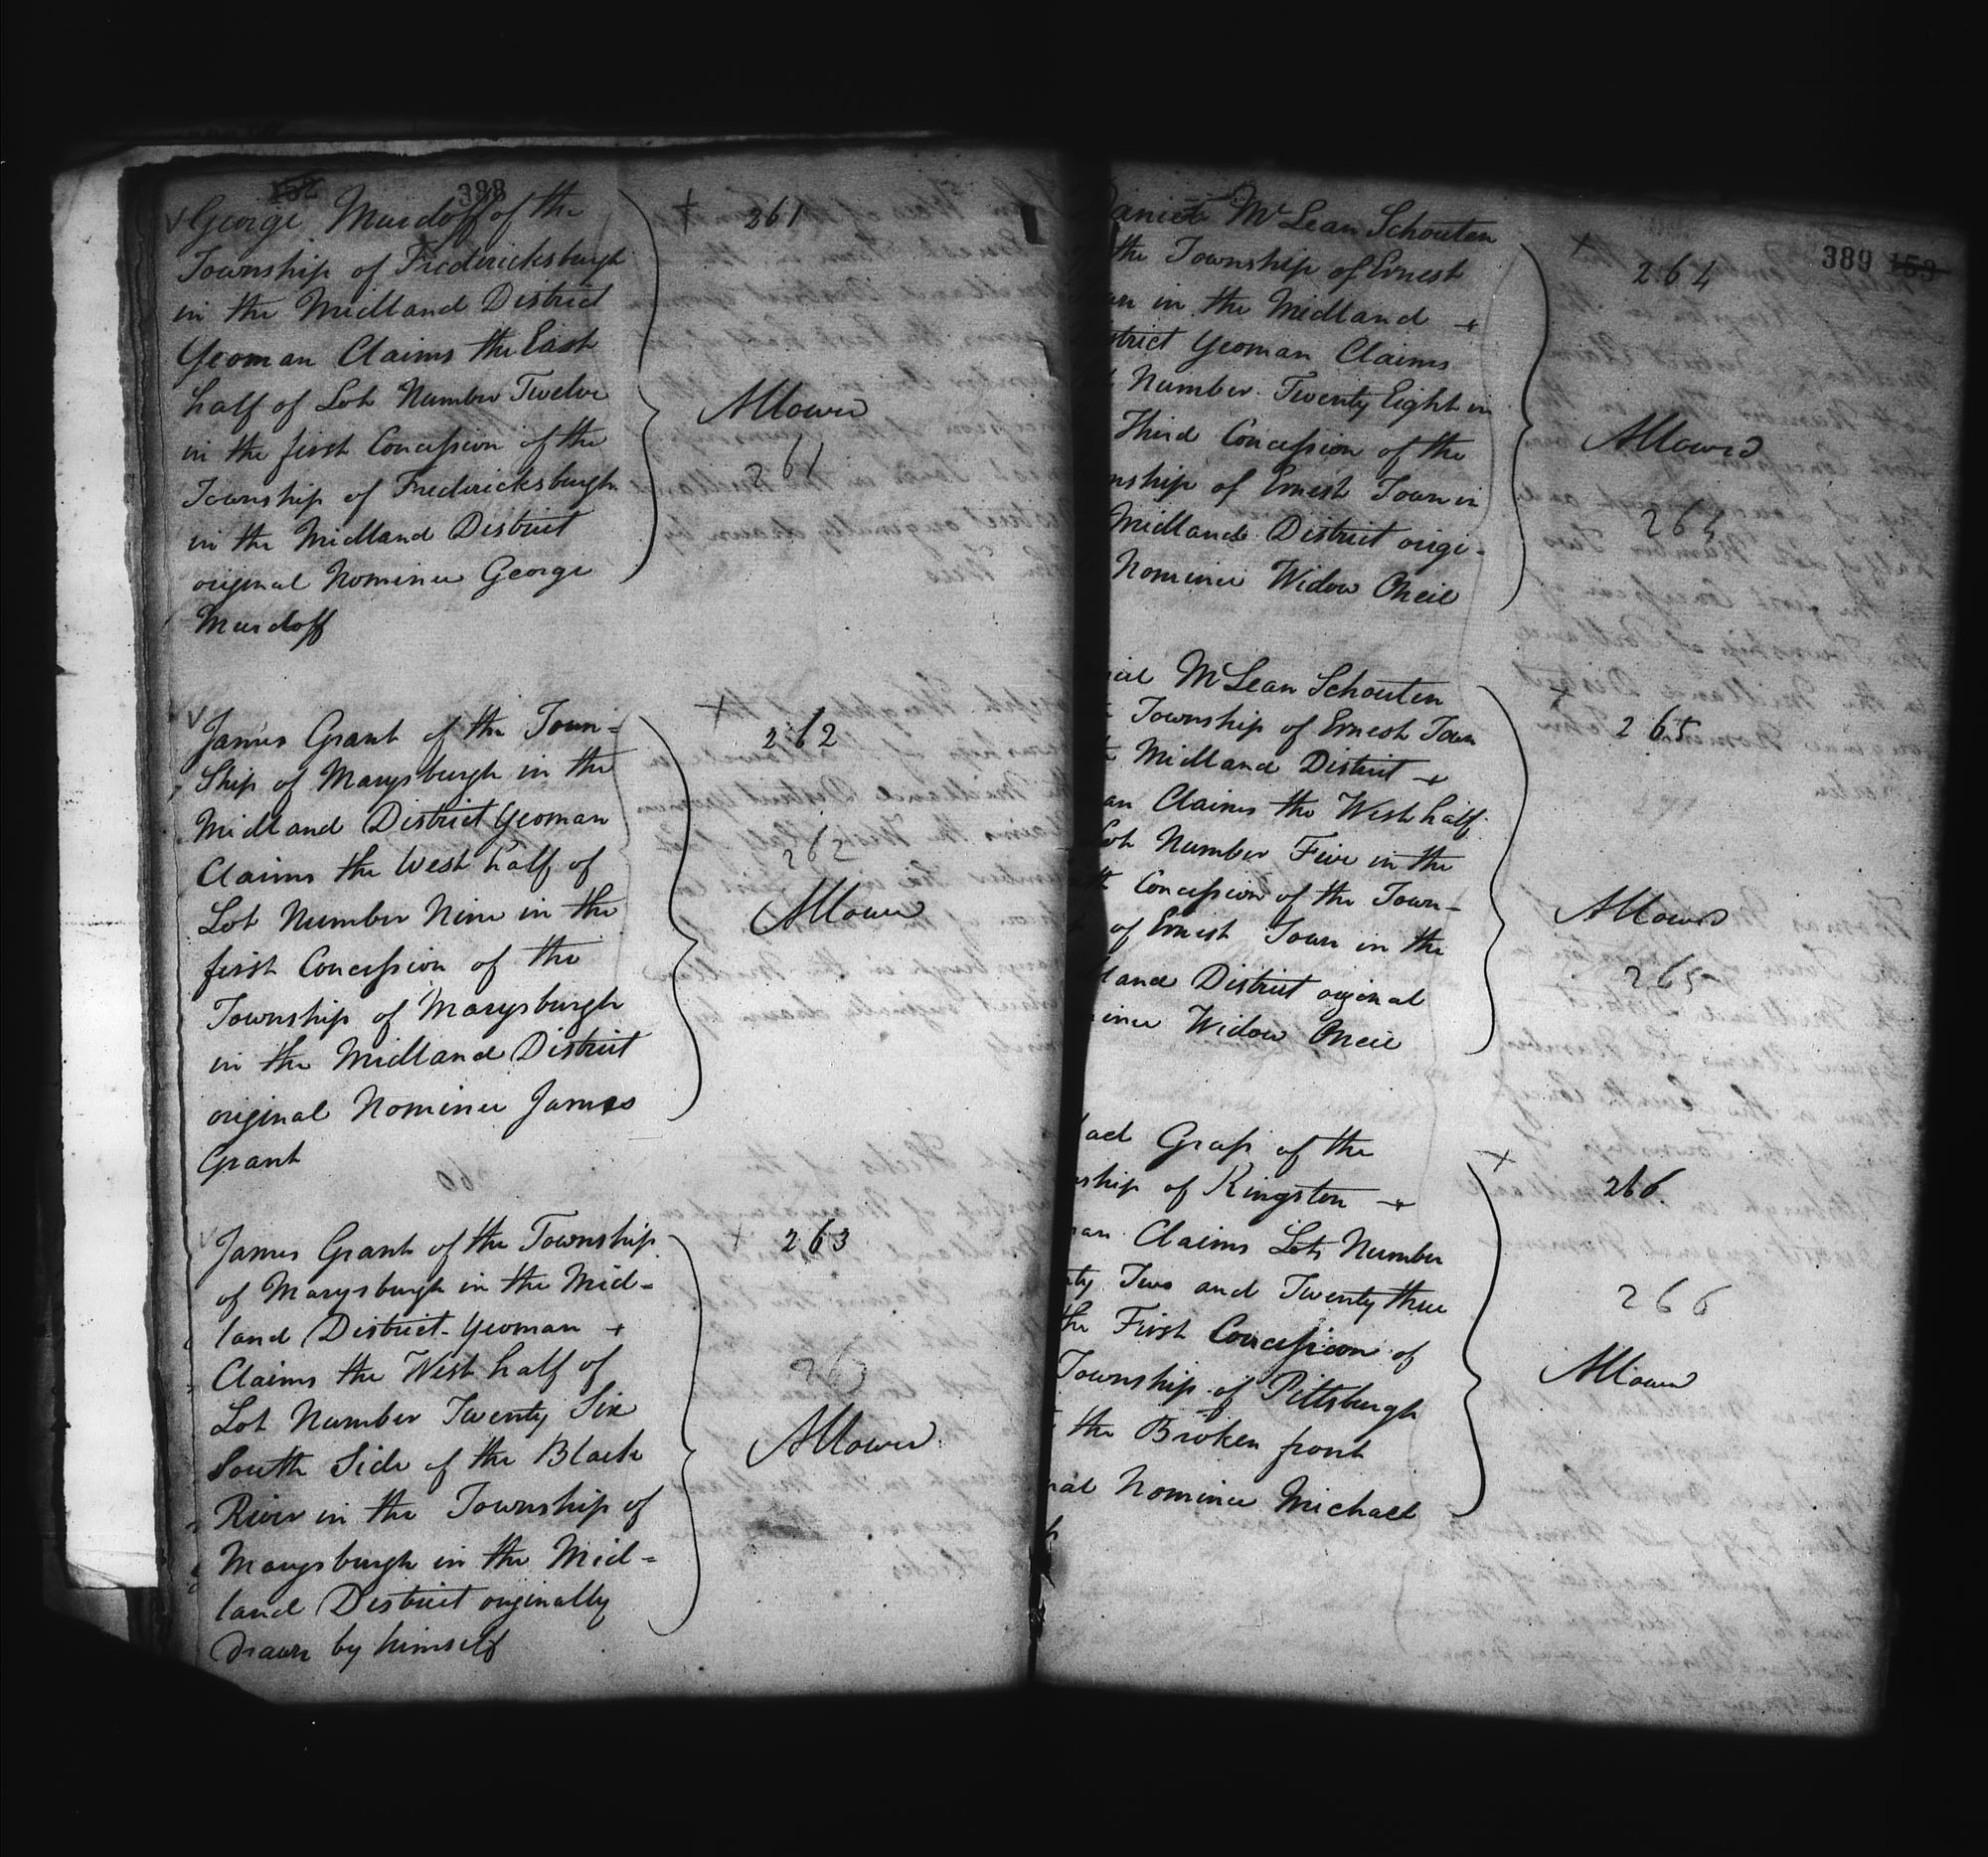 152 388
George Murdoff of the
Township of Fredericksburgh
in the Midland District
Yeoman Claims the East
half of Lot Number Twelve
in the first Concession of the
Township of Fredericksburgh
in the Midland District
original Nominee George
Murdoff
261
Allowed
261
James Grant of the Town=
Ship of Marysburgh in the
Midland District Yeoman
Claims the West half of
Lot Number Nine in the
first Concession of the
Township of Marysburgh
in the Midland District
original Nominee James
Grant
262
262
Allowed
James Grant of the Township
of Marysburgh in the Mid=
land District Yeoman
Claims the West half of
Lot Number Twenty Six
South Side of the Black
River in the Township of
Marysburgh in the Mid=
land District originally
drawn by himself
263
263
Allowed
389 153
Daniel McLean Schouten
the Township of Ernest
wn in the Midland
strict Yeoman Claims
Number Twenty Eight in
Third Concession of the
nship of Ernest Town in
Midland District origi-
Nominee Widow Oneil
264
Allowed
264
iel McLean Schouten
Township of Ernest Town
Midland District
an Claims the West half
Lot Number Five in the
Concession of the Town-
of Ernest Town in the
land District original
inee Widow Oneil
265
Allowed
265
ael Grass of the
nship of Kingston
man Claims Lots Number
nty Two and Twenty three
the First Concession of
Township of Pittsburgh
the Broken front
nal Nominee Michael
266
266
Allowed